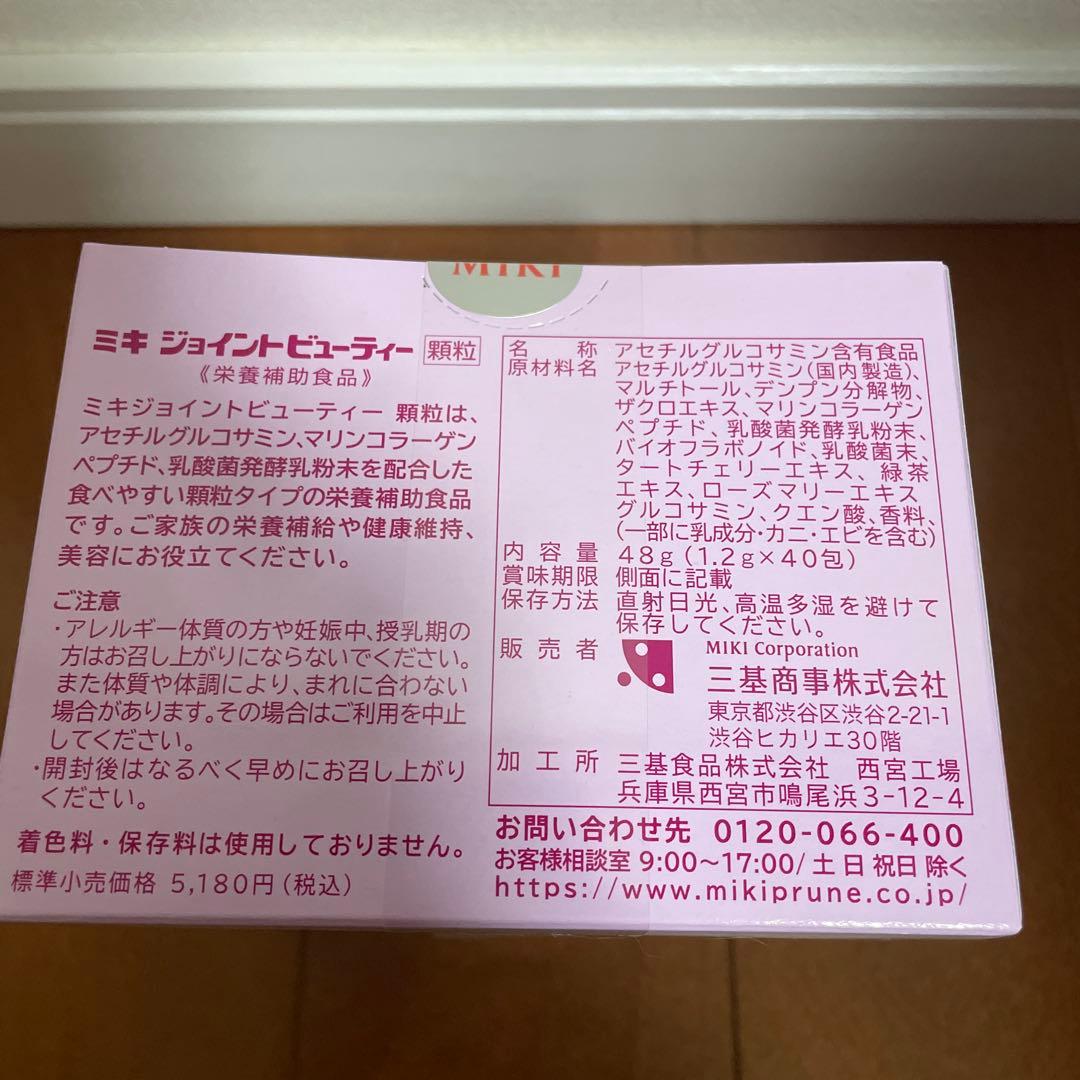 MIKI
ミキ ジョイントビューティー 顆粒
《栄養補助食品》
ミキジョイントビューティー 顆粒は、
アセチルグルコサミン、マリンコラーゲン
ペプチド、乳酸菌発酵乳粉末を配合した
食べやすい顆粒タイプの栄養補助食品
です。ご家族の栄養補給や健康維持、
美容にお役立てください。
ご注意
・アレルギー体質の方や妊娠中、授乳期の
方はお召し上がりにならないでください。
また体質や体調により、まれに合わない
場合があります。その場合はご利用を中止
してください。
・開封後はなるべく早めにお召し上がり
ください。
着色料・保存料は使用しておりません。
標準小売価格 5,180円（税込）
名称 アセチルグルコサミン含有食品
原材料名 アセチルグルコサミン（国内製造）、
マルチトール、デンプン分解物、
ザクロエキス、マリンコラーゲン
ペプチド、乳酸菌発酵乳粉末、
バイオフラボノイド、乳酸菌末、
タートチェリーエキス、緑茶
エキス、ローズマリーエキス
グルコサミン、クエン酸、香料、
（一部に乳成分・カニ・エビを含む）
内容量 48g（1.2g×40包）
賞味期限 側面に記載
保存方法 直射日光、高温多湿を避けて
保存してください。
販売者 MIKI Corporation
三基商事株式会社
東京都渋谷区渋谷2-21-1
渋谷ヒカリエ30階
加工所 三基食品株式会社 西宮工場
兵庫県西宮市鳴尾浜3-12-4
お問い合わせ先 0120-066-400
お客様相談室 9:00〜17:00/ 土 日 祝日 除く
https://www.mikiprune.co.jp/